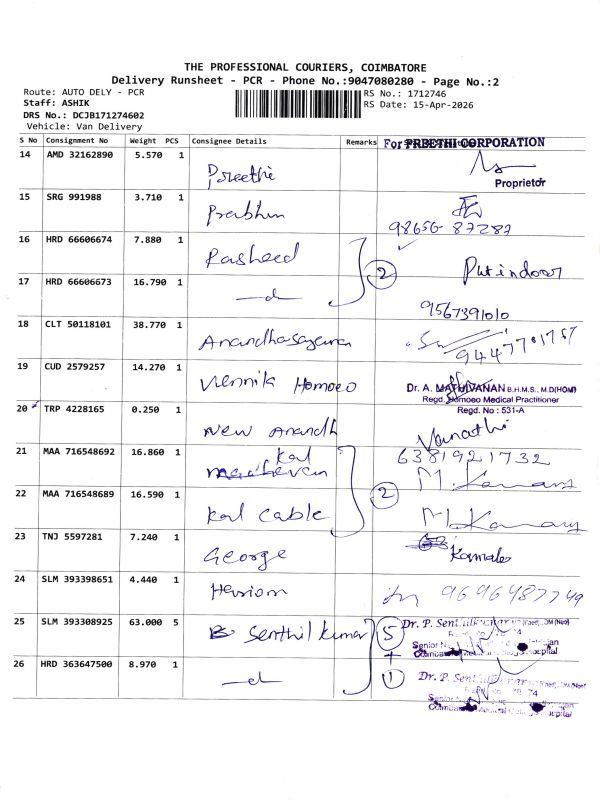 THE PROFESSIONAL COURIERS, COIMBATORE
Delivery Runsheet - PCR - Phone No.:9047080280 - Page No.:2
Route: AUTO DELY - PCR
RS No.: 1712746
Staff: ASHIK
RS Date: 15-Apr-2026
DRS No.: DCJB171274602
Vehicle: Van Delivery
S No Consignment No Weight PCS Consignee Details Remarks
For PREETHI CORPORATION
14 AMD 32162890 5.570 1 Preethi
Proprietor
15 SRG 991988 3.710 1 Prabhu
98656 87287
16 HRD 66606674 7.880 1 Rasheed
2
17 HRD 66606673 16.790 1
9567391010
18 CLT 50118101 38.770 1
19 CUD 2579257 14.270 1 Homoeo
Dr. A. MATHIVANAN B.H.M.S., M.D(HOM)
Regd. Homoeo Medical Practitioner
Regd. No : 531-A
20 TRP 4228165 0.250 1 New Anandh
Vanathi
21 MAA 716548692 16.860 1 Kal
6381921732
2
22 MAA 716548689 16.590 1 Kal Cable
23 TNJ 5597281 7.240 1 George
24 SLM 393398651 4.440 1
9696487749
25 SLM 393308925 63.000 5 Senthil kumar
5
+
Dr. P. Senthilkumar
26 HRD 363647500 8.970 1
1
Dr. P. Senthilkumar